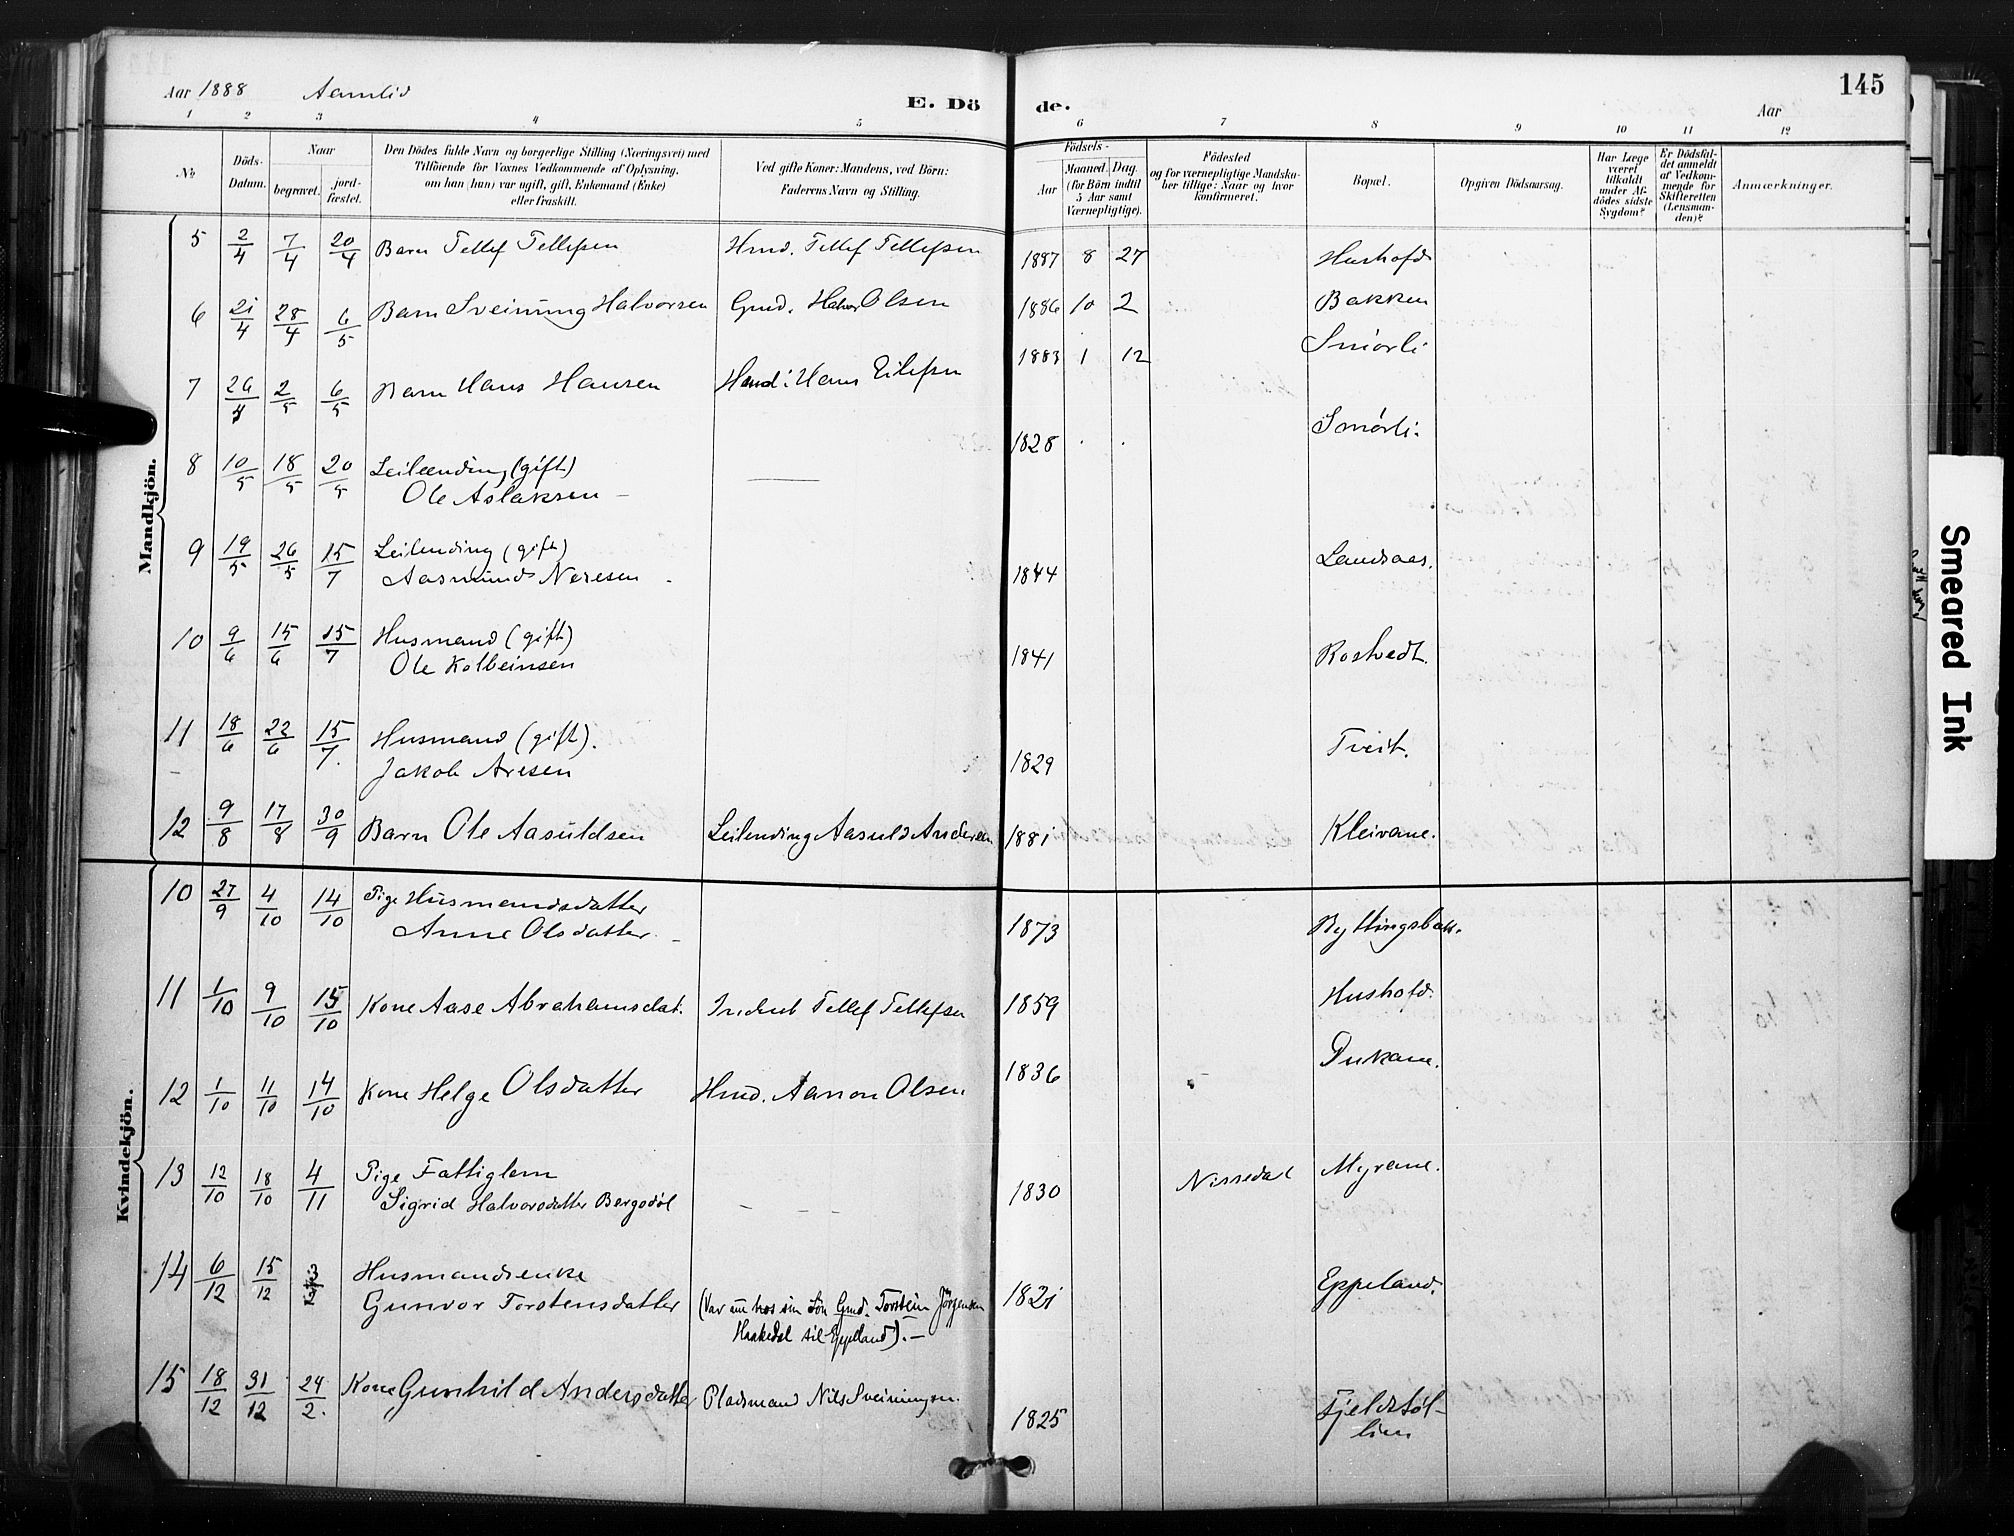 Aar 1888 Aamlid E. Dö de. Aar 145
1 2 3 4 5 6 7 8 9 10 11 12
No
Döds-Datum.
Naar
begravet.
jord-fæstet.
Den Dödes fulde Navn og borgerlige Stilling (Næringsvei) med
Tilföiende for Voxnes Vedkommende af Oplysning,
om han (hun) var ugift, gift, Enkemand (Enke)
eller fraskilt.
Ved gifte Koner: Mandens, ved Börn:
Faderens Navn og Stilling.
Födsels-
Aar
Maaned. Dag.
(for Börn indtil
5 Aar samt
Værnepligtige).
Födested
og for værnepligtige Mandska-
ber tillige: Naar og hvor
konfirmeret.
Bopæl.
Opgiven Dödsaarsag.
Har Læge
været
tilkaldt
under Af-
dödes sidste
Sygdom?
Er Dödsfal-
det anmeldt
af Vedkom-
mende for
Skifteretten
(Lensman-
den)?
Anmærkninger.
Mandkjön.
5 2/4 7/4 20/4 Barn Tellef Tellefsen Hmd. Tellef Tellefsen 1887 8 27 Hushofd
6 21/4 28/4 6/5 Barn Sveinung Halvorsen Gmd. Halvor Olsen 1886 10 2 Bakken
7 26/4 2/5 6/5 Barn Hans Hansen Hmd: Hans Eilefsen 1883 1 12 Smörli
8 10/5 18/5 20/5 Leilænding (gift)
Ole Aslaksen 1828 Smörli.
9 19/5 26/5 15/7 Leilending (gift)
Aasmund Neresen 1844 Landsaas.
10 9/6 15/6 15/7 Husmand (gift)
Ole Kolbeinsen 1841 Rostvedt.
11 18/6 22/6 15/7. Husmand (gift).
Jakob Aresen 1829 Tveit.
12 9/8 17/8 30/9 Barn Ole Aasuldsen Leilending Aasuld Andersen 1881 Kleivane.
Kvindekjön.
10 27/9 4/10 14/10 Pige Husmandsdatter
Anne Olsdatter. 1873 Byttingsbak.
11 1/10 9/10 15/10 Kone Aase Abrahamsdat. Inderst Tellef Tellefsen 1859 Hushofd.
12 1/10 11/10 14/10 Kone Helge Olsdatter Hmd. Aanon Olsen 1836 Dukane.
13 12/10 18/10 4/11 Pige Fattiglem
Sigrid Halvorsdatter Bergsdöl 1830 Nissedal Myrane.
14 6/12 15/12 Husmandsenke
Gunvor Torstensdatter (Var nu hos sin Sön Gmd. Torstein Jörgensen
Haakedal til Eppeland). 1821 Eppeland.
15 18/12 31/12 24/2. Kone Gunhild Andersdatter Pladsmand Nils Sveinungsen. 1825 Fjeldsöl-
lien
Smeared Ink